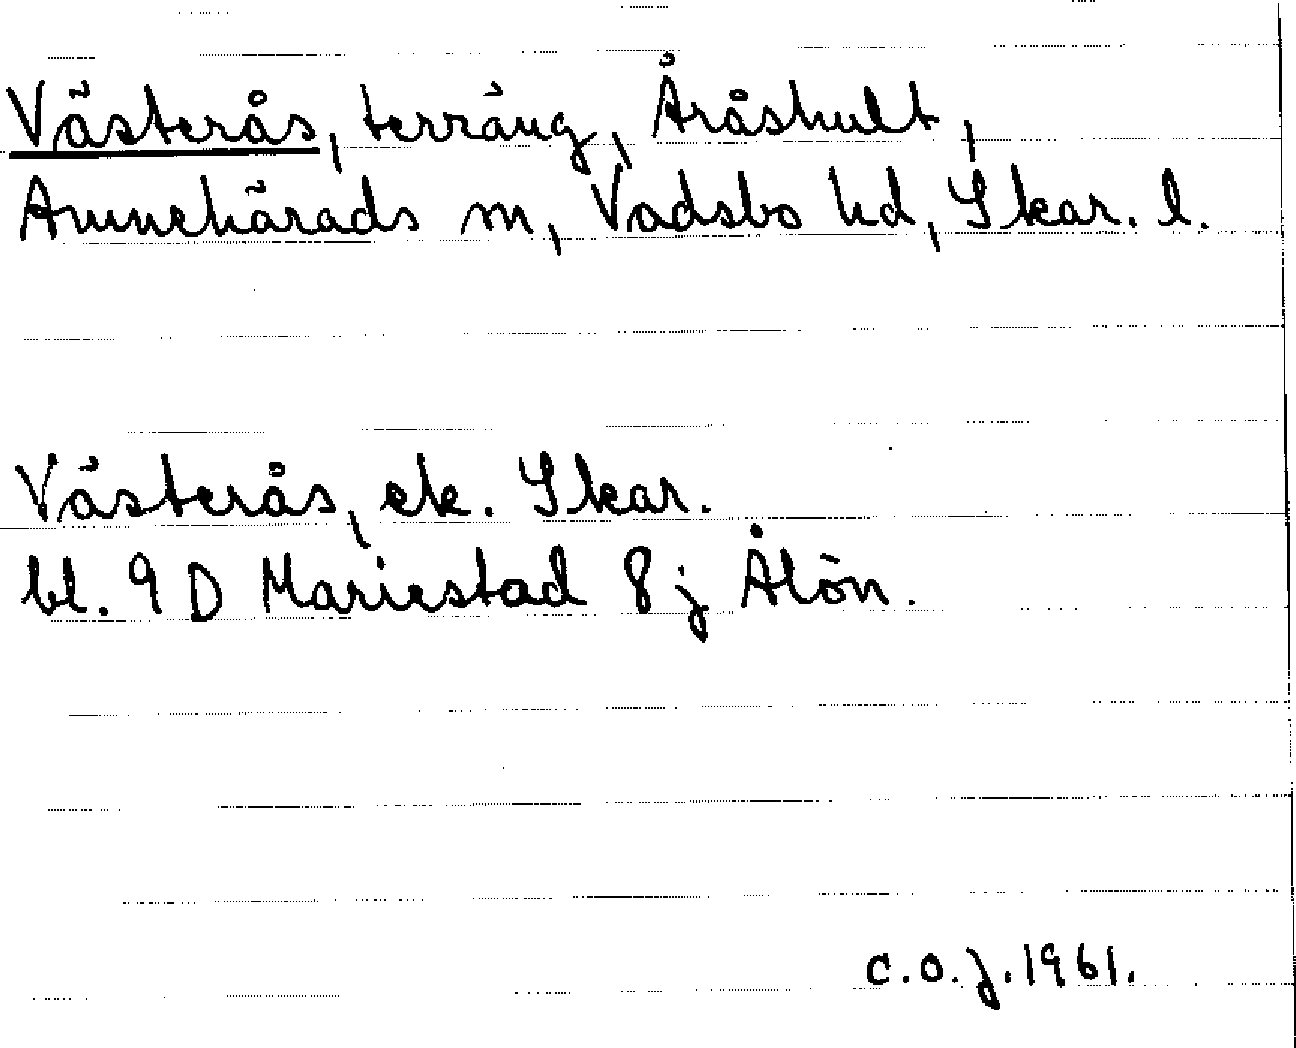 Västerås, terräng, Åråshult,
Amnehärads sn, Vadsbo hd, Skar. l.
Västerås, ek. Skar.
bl. 9 D Mariestad 8 j Ålön.
C.O.J. 1961.